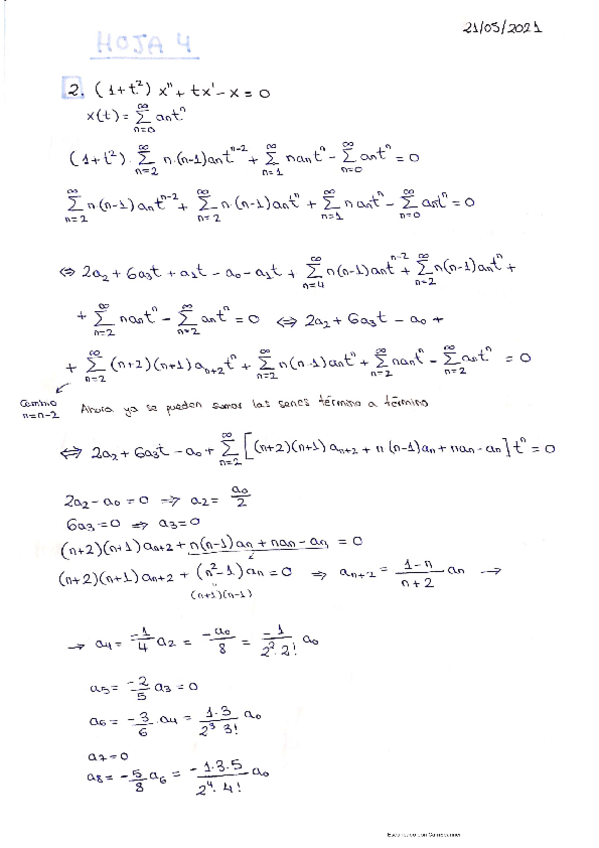 21/05/2021
HOJA 4
2. (1+t²) x'' + tx' - x = 0
x(t) = ∑_{n=0}^{∞} a_n t^n
(1+t²) · ∑_{n=2}^{∞} n·(n-1) a_n t^{n-2} + ∑_{n=1}^{∞} n a_n t^n - ∑_{n=0}^{∞} a_n t^n = 0
∑_{n=2}^{∞} n(n-1) a_n t^{n-2} + ∑_{n=2}^{∞} n·(n-1) a_n t^n + ∑_{n=1}^{∞} n a_n t^n - ∑_{n=0}^{∞} a_n t^n = 0
⇔ 2a_2 + 6a_3 t + a_1 t - a_0 - a_1 t + ∑_{n=4}^{∞} n(n-1) a_n t^{n-2} + ∑_{n=2}^{∞} n(n-1) a_n t^n +
+ ∑_{n=2}^{∞} n a_n t^n - ∑_{n=2}^{∞} a_n t^n = 0 ⇔ 2a_2 + 6a_3 t - a_0 +
+ ∑_{n=2}^{∞} (n+2)(n+1) a_{n+2} t^n + ∑_{n=2}^{∞} n(n-1) a_n t^n + ∑_{n=2}^{∞} n a_n t^n - ∑_{n=2}^{∞} a_n t^n = 0
Cambio n=n-2
Ahora ya se pueden sumar las series término a término
⇔ 2a_2 + 6a_3 t - a_0 + ∑_{n=2}^{∞} [(n+2)(n+1) a_{n+2} + n(n-1) a_n + n a_n - a_n] t^n = 0
2a_2 - a_0 = 0 ⇒ a_2 = a_0/2
6a_3 = 0 ⇒ a_3 = 0
(n+2)(n+1) a_{n+2} + n(n-1) a_n + n a_n - a_n = 0
(n+2)(n+1) a_{n+2} + (n²-1) a_n = 0 ⇒ a_{n+2} = (1-n)/(n+2) a_n →
(n+1)(n-1)
→ a_4 = -1/4 a_2 = -a_0/8 = -1/(2²·2!) a_0
a_5 = -2/5 a_3 = 0
a_6 = -3/6 · a_4 = 1·3/(2³ 3!) a_0
a_7 = 0
a_8 = -5/8 a_6 = -1·3·5/(2⁴·4!) a_0
Escaneado con CamScanner